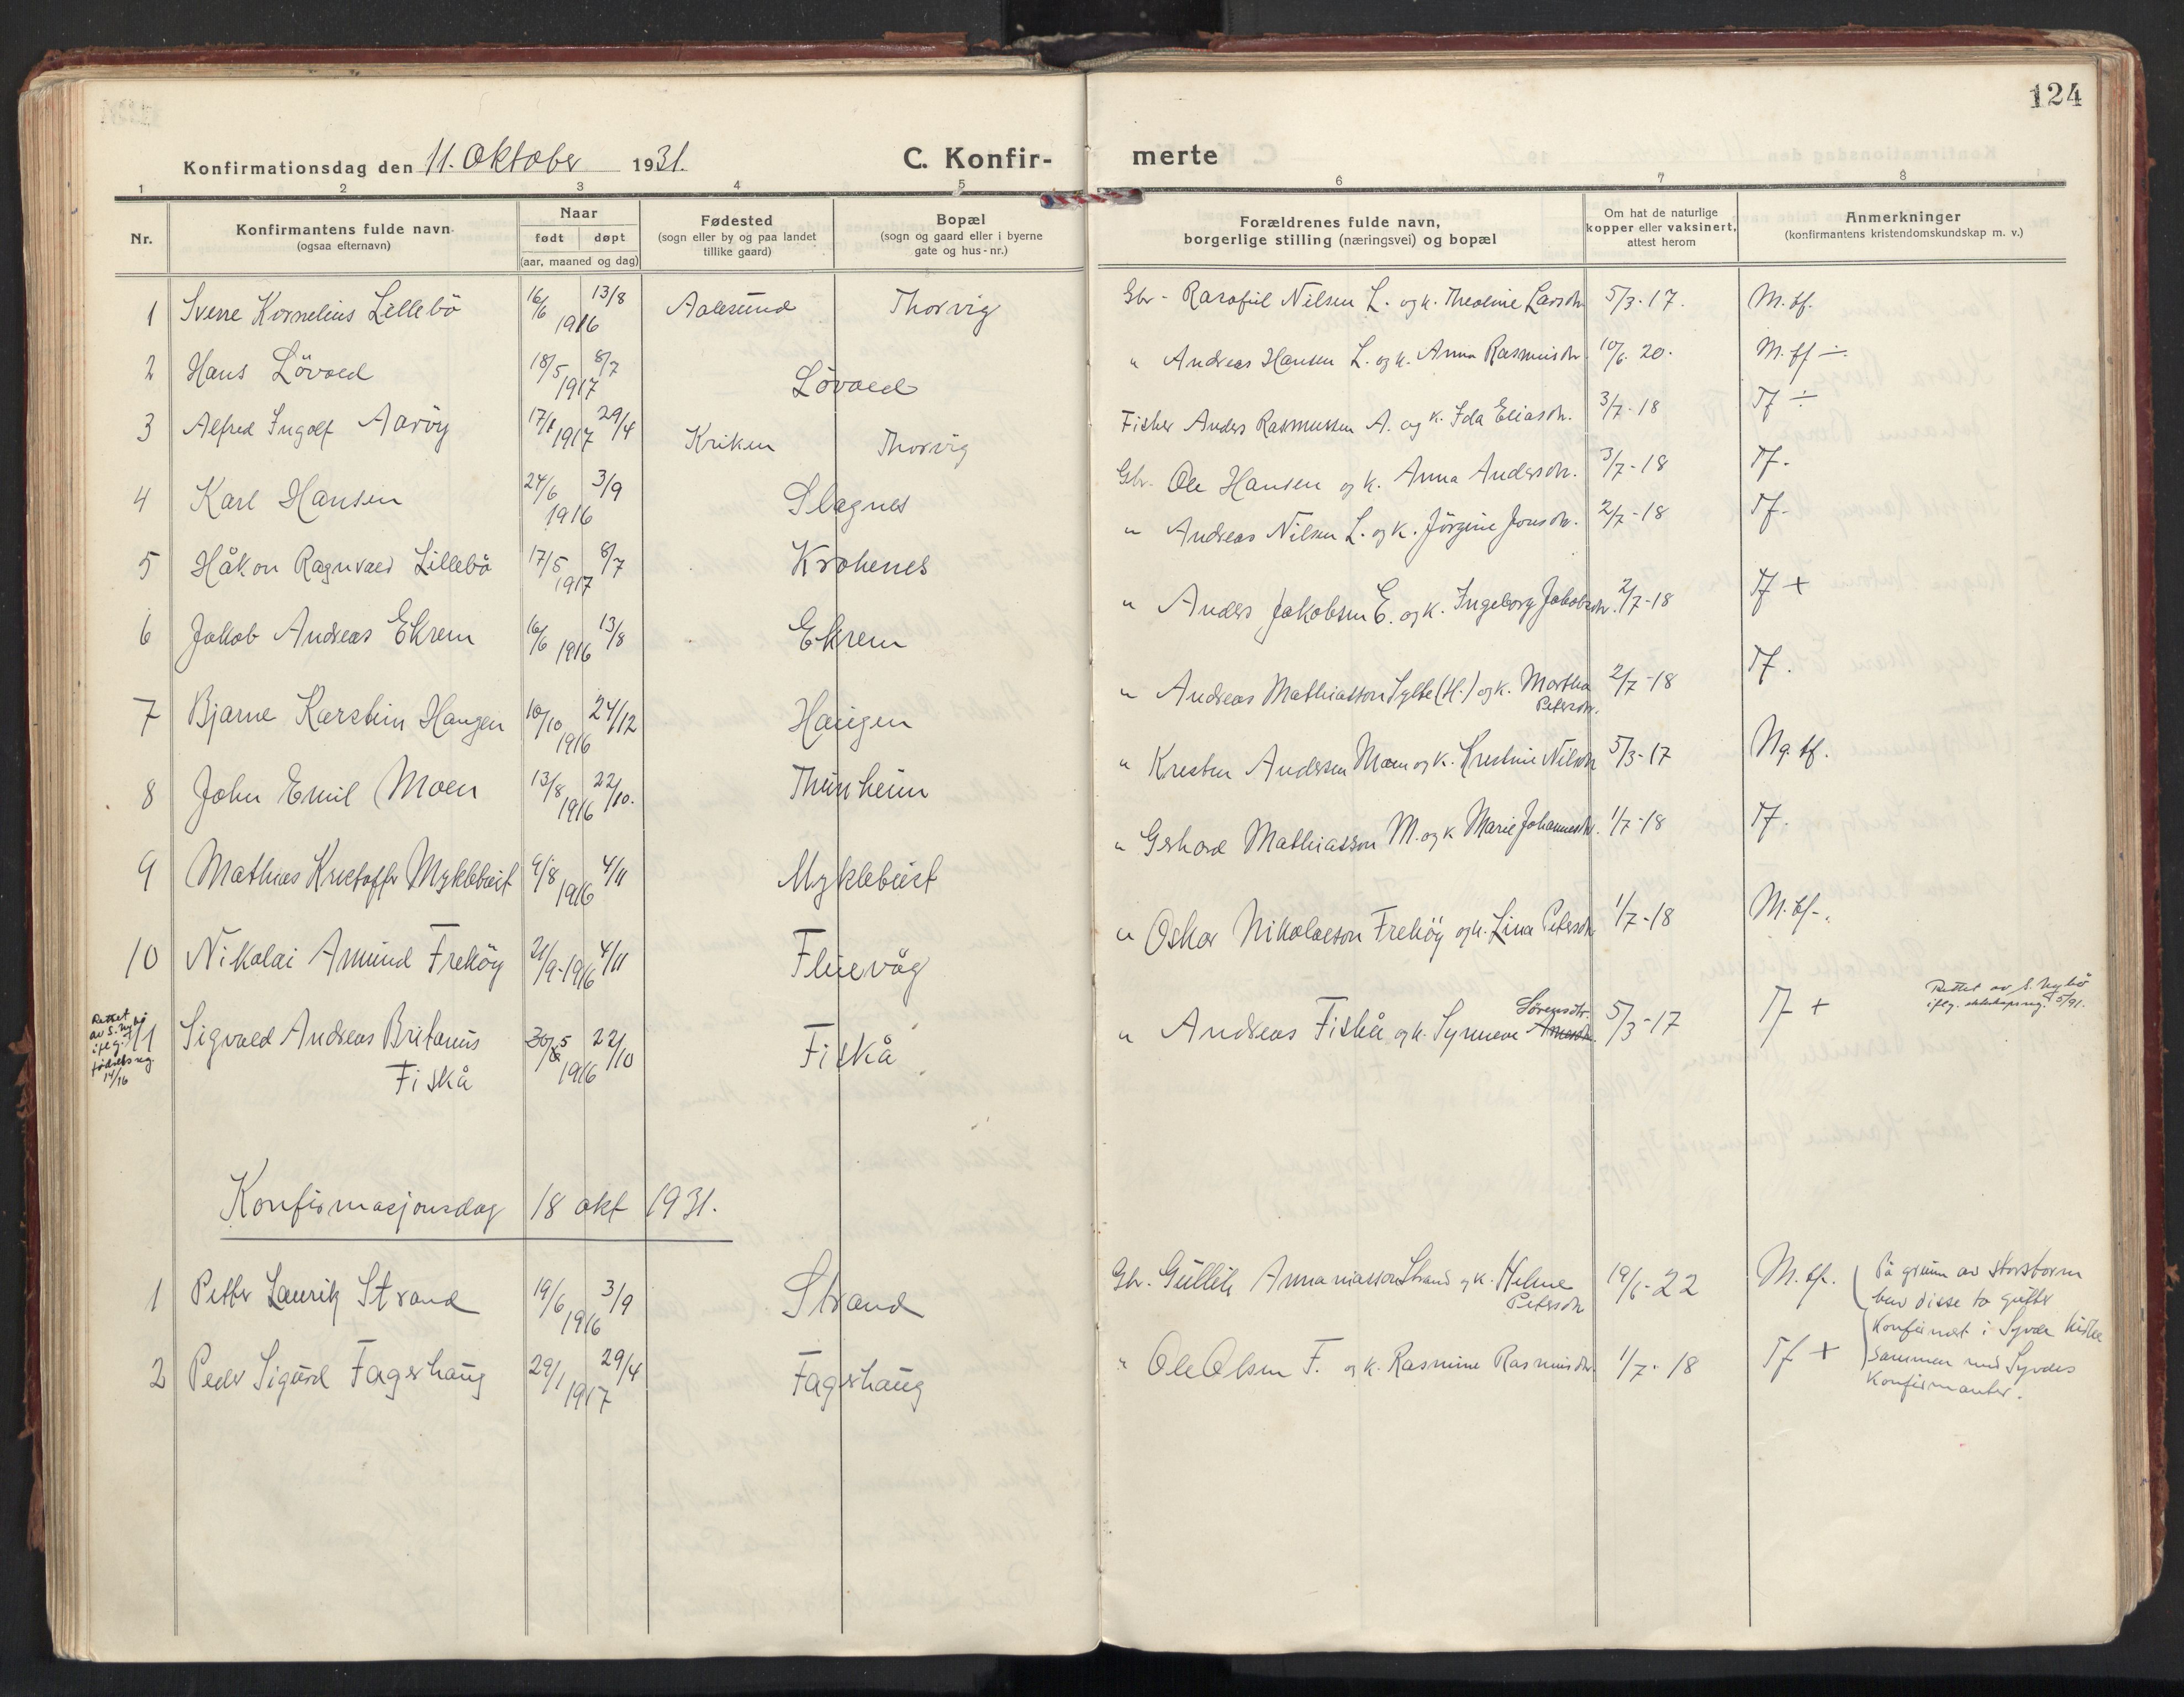 124
Konfirmationsdag den 11. Oktober 1931. C. Konfir- merte
1 2 3 4 5 6 7 8
Nr. Konfirmantens fulde navn (ogsaa efternavn) Naar født døpt (aar, maaned og dag) Fødested (sogn eller by og paa landet tillike gaard) Bopæl (sogn og gaard eller i byerne gate og hus-nr.) Forældrenes fulde navn, borgerlige stilling (næringsvei) og bopæl Om hat de naturlige kopper eller vaksinert, attest herom Anmerkninger (konfirmantens kristendomskundskap m. v.)
1 Sverre Kornelius Lillebö 16/6 1916 13/8 Aalesund Thorvig Gbr - Nilsen L. og k. Theoline Larsdtr 5/3-17. M. tf.
2 Hans Lövold 18/5 1917 8/7 Lövold " Andreas Hansen L. og k. Anna Rasmusdtr 10/6. 20. M. tf ÷
3 Alfred Ingolf Aaröy 17/1 1917 29/4 Kriken Thorvig Fisker Anders Rasmussen A. og k. Ida Eliasdtr. 3/7-18 Tf ÷
4 Karl Hansen 24/6 1916 3/9 Slagnes Gbr. Ole Hansen og k. Anna Andersdtr. 3/7-18 Tf.
5 Håkon Ragnvald Lillebö 17/5 1917 8/7 Krohenes " Andreas Nilsen L. og k. Jörgine Jonsdtr. 2/7-18 Tf.
6 Jakob Andreas Ekrem 16/6 1916 13/8 Ekrem " Anders Jakobsen E. og k. Ingeborg Jakobsdtr. 2/7-18 Tf +
7 Bjarne Karstein Haugen 10/10 1916 24/12 Haugen " Andreas Mathiasson Sylte (H.) og k. Martha Petersdtr. 2/7-18 Tf.
8 John Emil Moen 13/8 1916 22/10. Thunheim " Kresten Andersen Moen og k. Krestine Nilsdtr 5/3-17 Ng. tf.
9 Mathias Kristoffer Myklebust 9/8 1916 4/11 Myklebust " Gerhard Mathiasson M. og k Marie Johannesdtr. 1/7-18 Tf.
10 Nikolai Amund Freköy 21/9-1916 4/11 Fluevåg " Oskar Nikolaison Freköy og k. Lina Petersdtr 1/7-18 M. tf.
Rettet av S. Nybö iflg. fødselsreg. 14/16
11 Sigvald Andreas Britanus Fiskå 30/5 1916 22/10 Fiskå " Andreas Fiskå og k. Synneve Sörensdtr. 5/3-17 Tf + Rettet av S. Nybö iflg. ekteskapsreg. 5/91.
Konfirmasjonsdag 18 okt 1931.
1 Petter Laurits Strand 19/6 1916 3/9 Strand Gbr. Gullik Annaniasson Strand og k. Helene Petersdtr 19/6-22 M. tf.
2 Peder Sigurd Fagerhaug 29/1 1917 29/4 Fagerhaug " Ole Olsen F. og k. Rasmine Rasmusdtr. 1/7-18 Tf +
På grunn av storstorm
blev disse to gutter
konfirmert i Syvde kirke
sammen med Syvdes
konfirmanter.